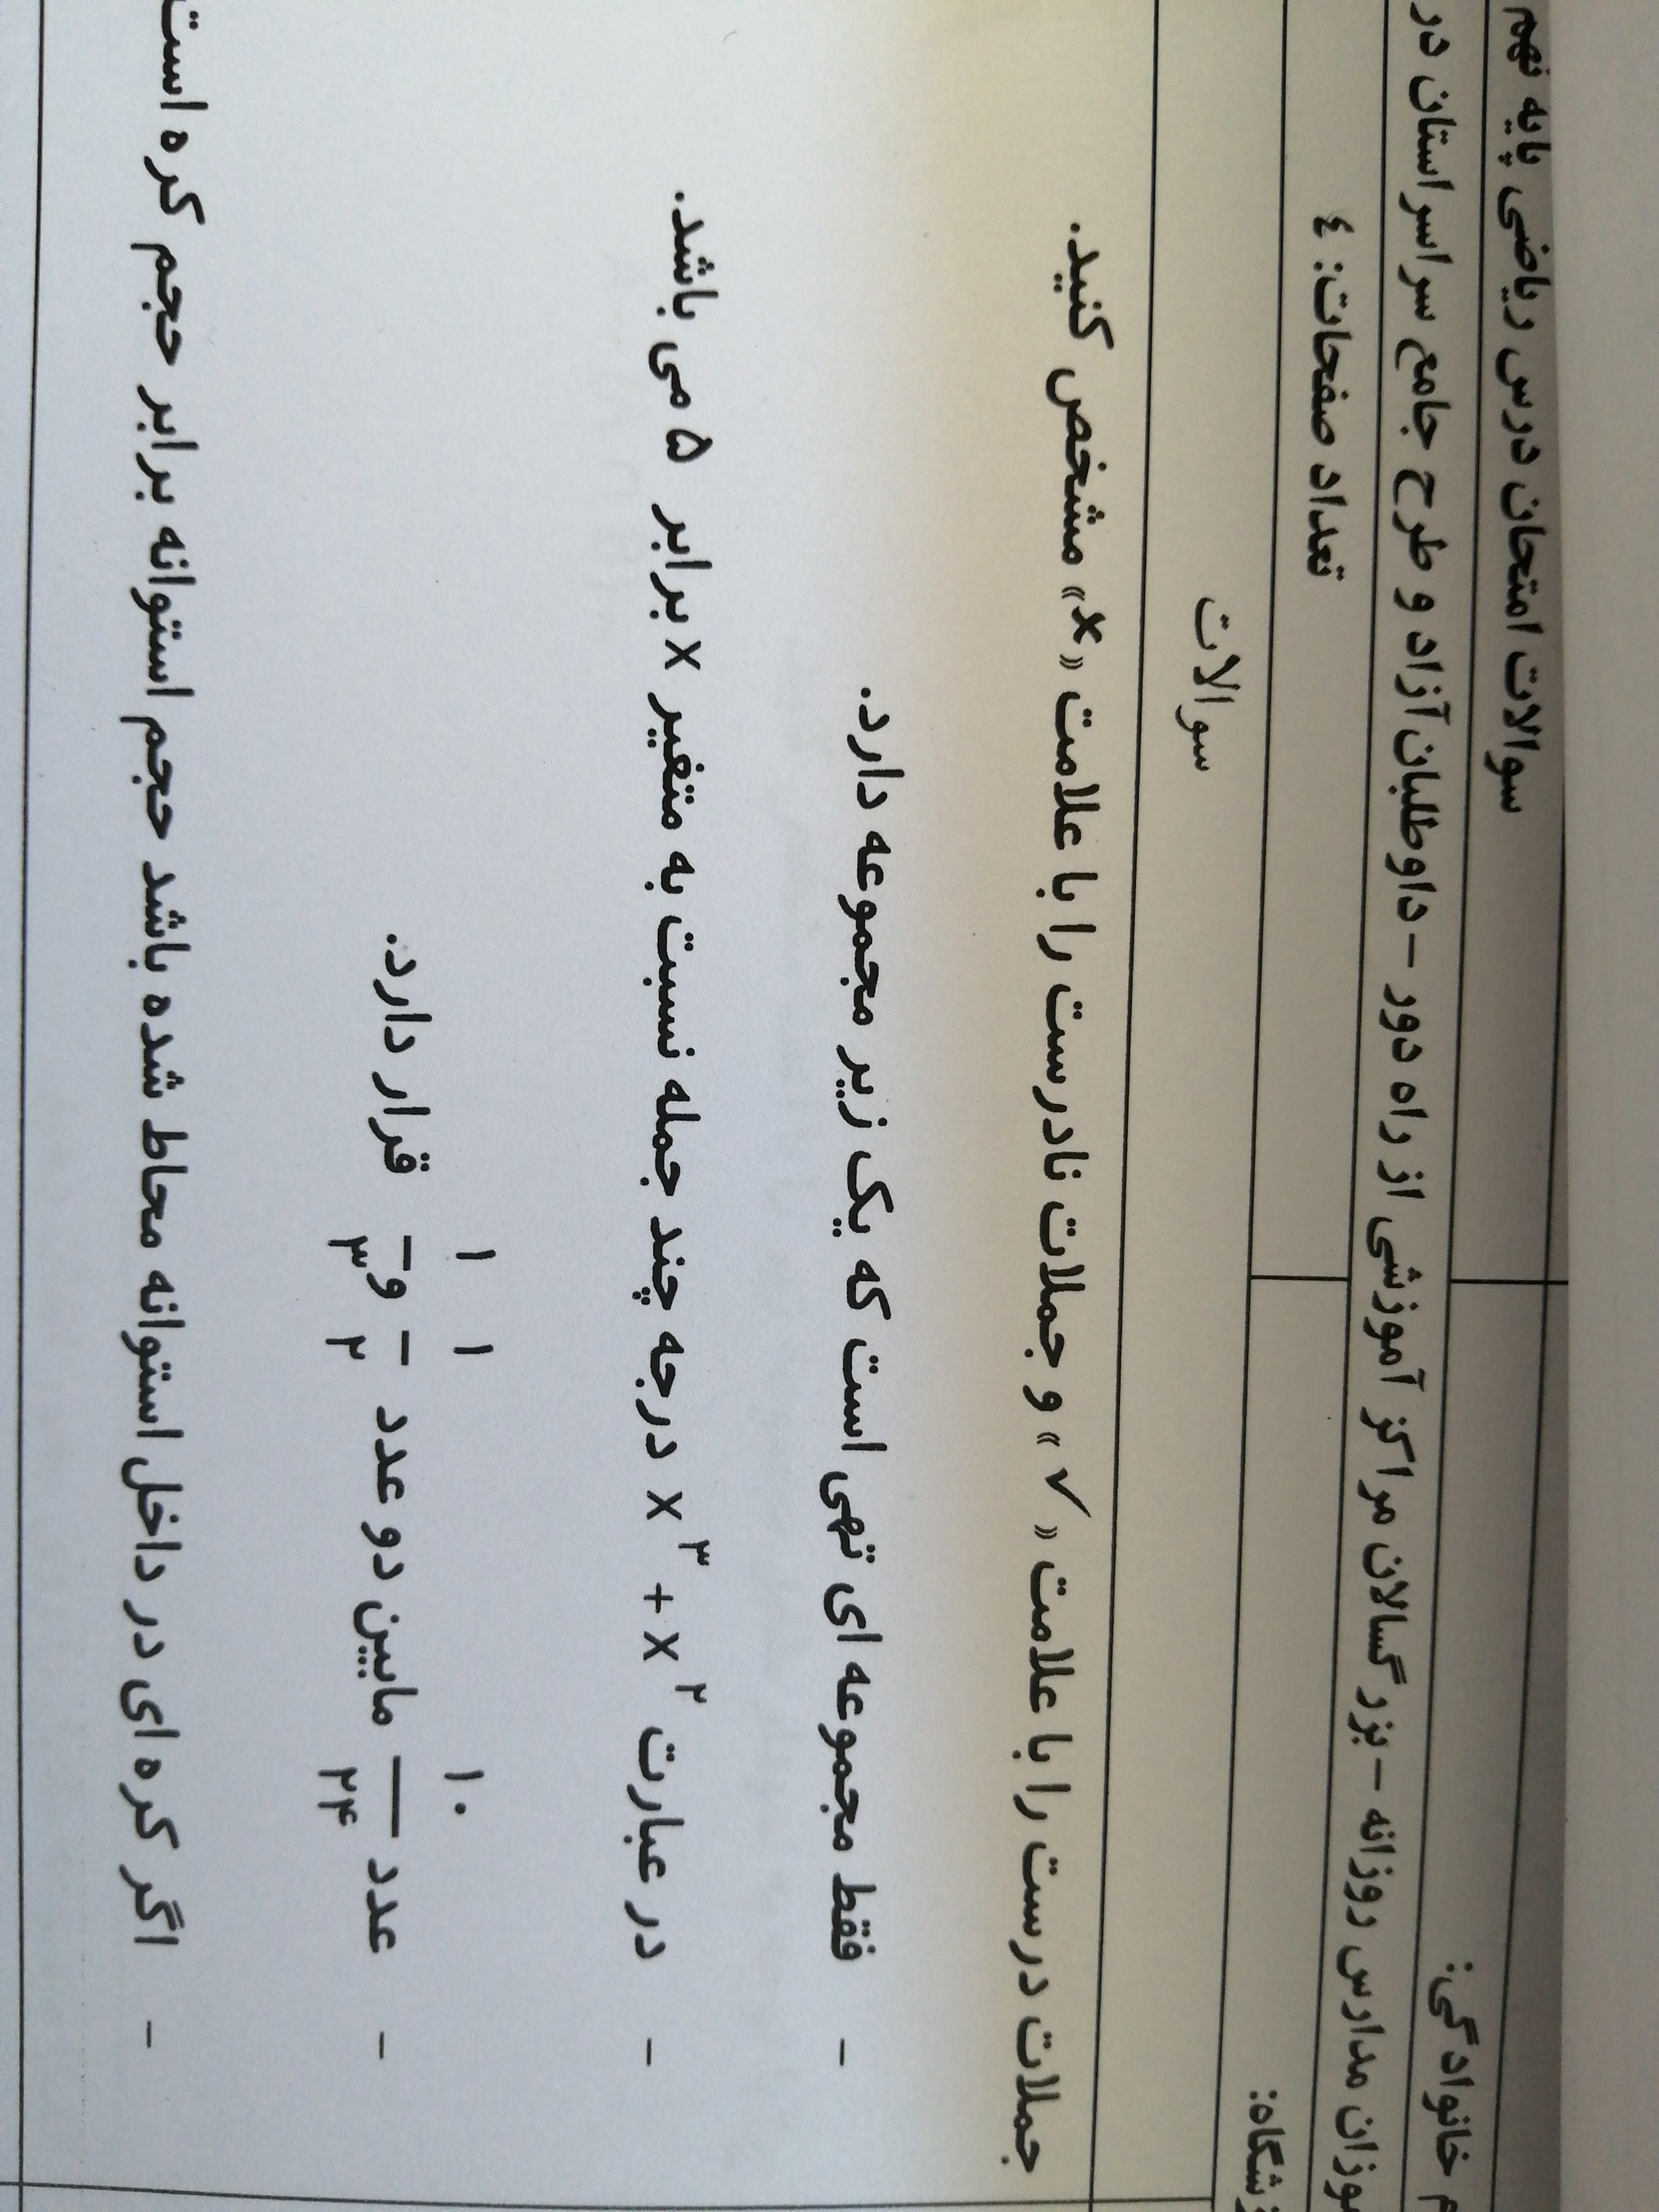 سوالات امتحان درس ریاضی پایه نهم
م خانوادگی:
موزان مدارس روزانه - بزرگسالان مراکز آموزشی از راه دور - داوطلبان آزاد و طرح جامع سراسر استان در
تعداد صفحات: ٤
سوالات
جملات درست را با علامت « ✓ » و جملات نادرست را با علامت «×» مشخص کنید.
- فقط مجموعه ای تهی است که یک زیر مجموعه دارد.
- در عبارت x^۳ + x^۲ درجه چند جمله نسبت به متغیر x برابر ۵ می باشد.
- عدد ۱۰/۲۴ مابین دو عدد ۱/۲ و ۱/۳ قرار دارد.
- اگر کره ای در داخل استوانه محاط شده باشد حجم استوانه برابر حجم کره است